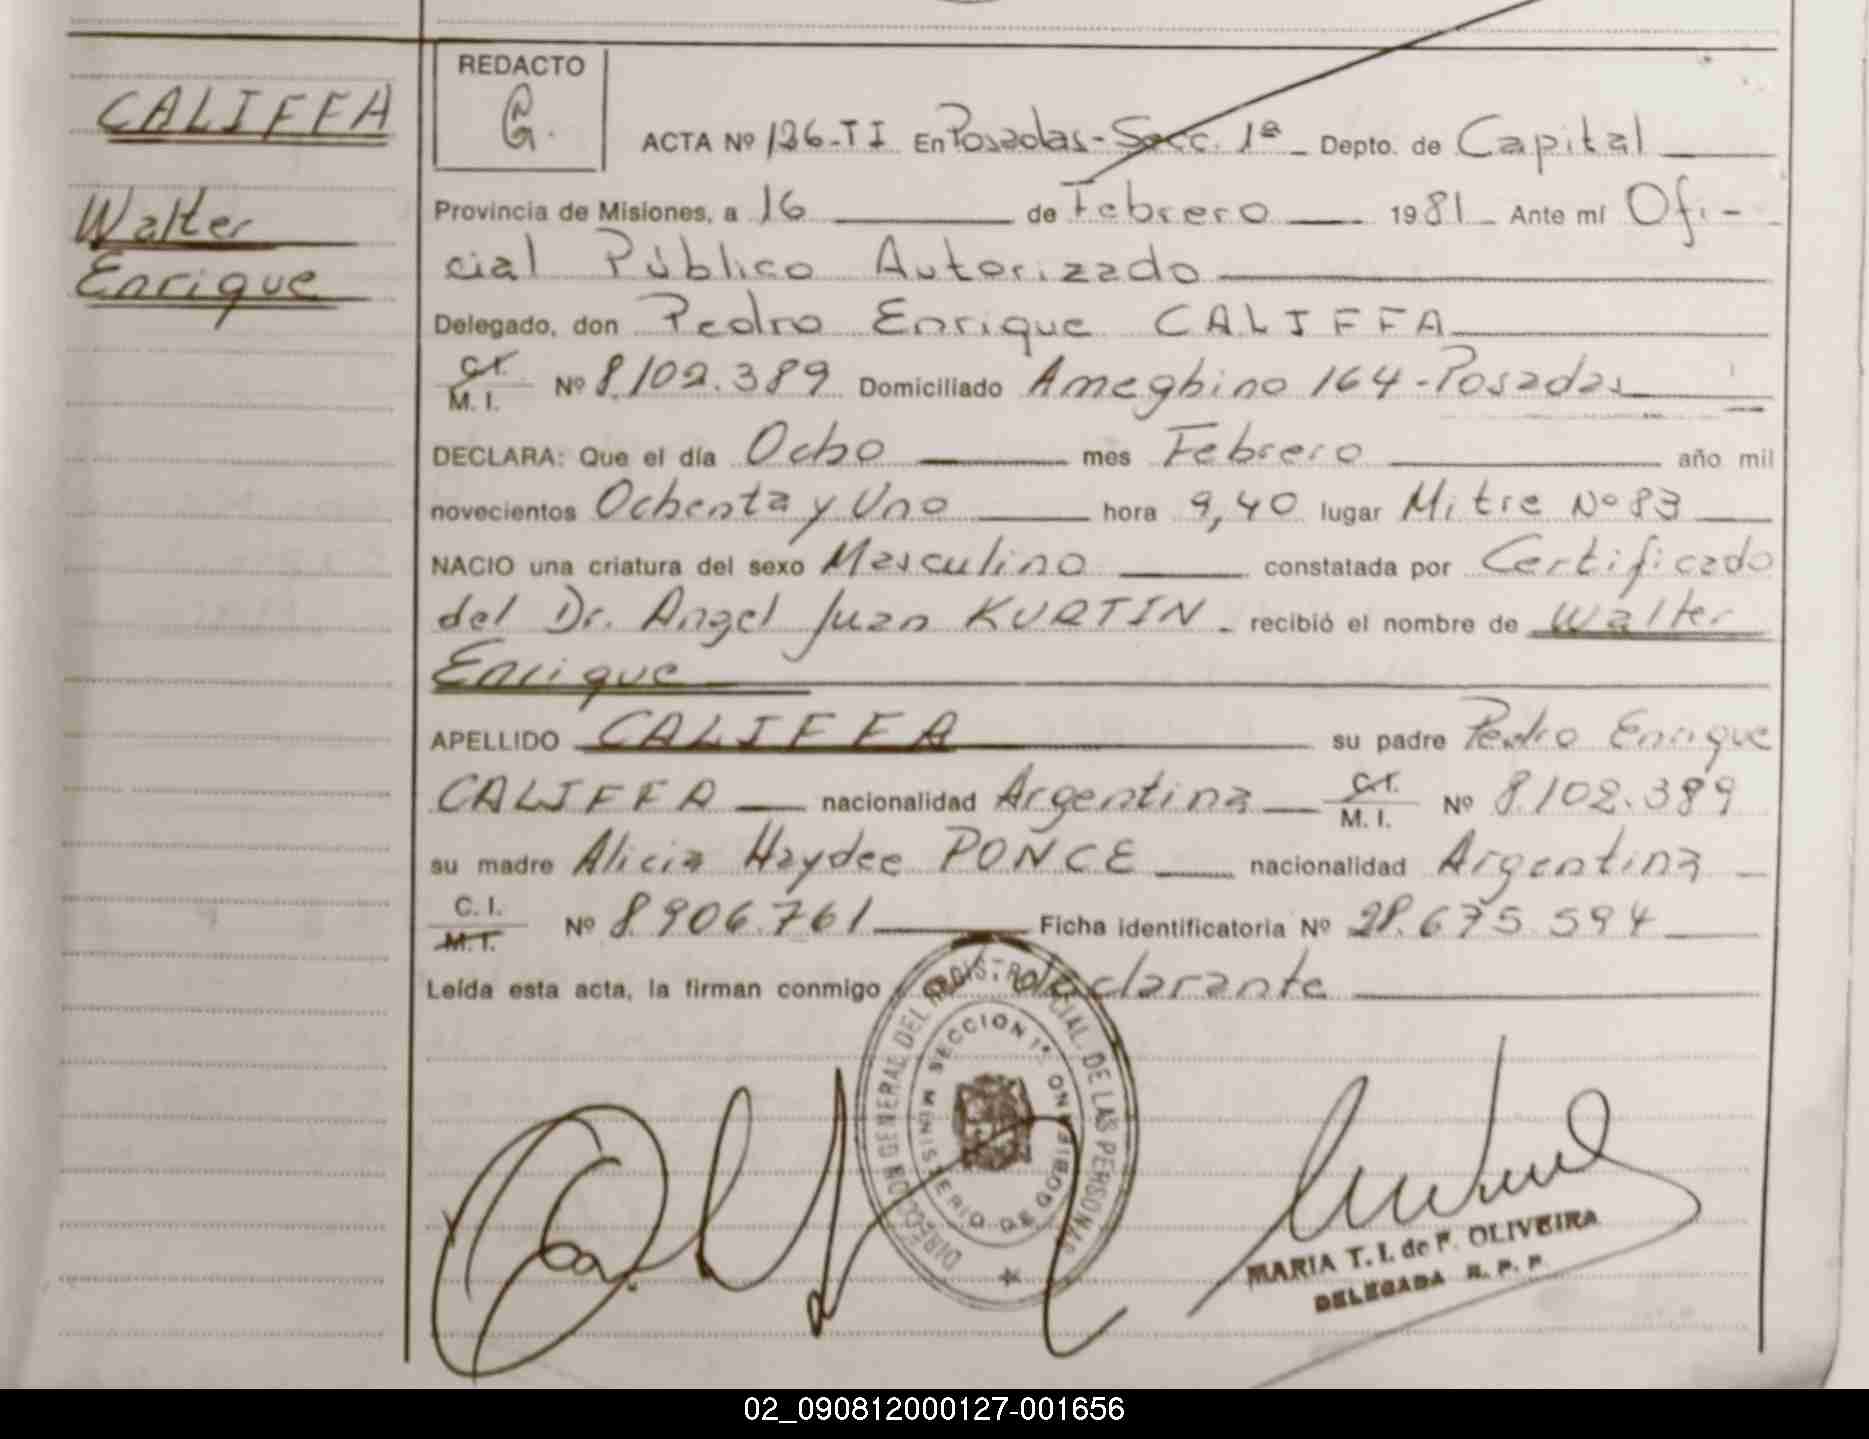 CALIFFA
Walter
Enrique
REDACTO
G.
ACTA Nº 126-TI En Posadas-Secc. 1ª Depto. de Capital
Provincia de Misiones, a 16 de Febrero 1981 Ante mí Ofi-
cial Público Autorizado
Delegado, don Pedro Enrique CALIFFA
C.I.
M. I. Nº 8.102.389 Domiciliado Ameghino 164-Posadas
DECLARA: Que el día Ocho mes Febrero año mil
novecientos Ochenta y Uno hora 9,40 lugar Mitre Nº 83
NACIO una criatura del sexo Masculino constatada por Certificado
del Dr. Angel Juan KURTIN recibió el nombre de Walter
Enrique
APELLIDO CALIFFA su padre Pedro Enrique
CALIFFA nacionalidad Argentina C.I. M. I. Nº 8.102.389
su madre Alicia Haydee PONCE nacionalidad Argentina
C. I.
M.I. Nº 8.906.761 Ficha identificatoria Nº 28.675.594
Leída esta acta, la firman conmigo el declarante
DIRECCION GENERAL DEL REGISTRO PCIAL. DE LAS PERSONAS
SECCION 1ª
MINISTERIO DE GOBIERNO
MARIA T. I. de F. OLIVEIRA
DELEGADA R. P. P.
02_090812000127-001656